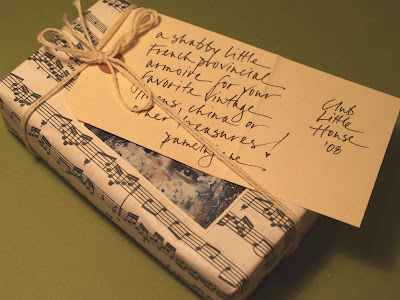 a shabby little
French provincial
armoire for your
favorite vintage
linens, china, or
other treasures!
Club
Little
House
'08